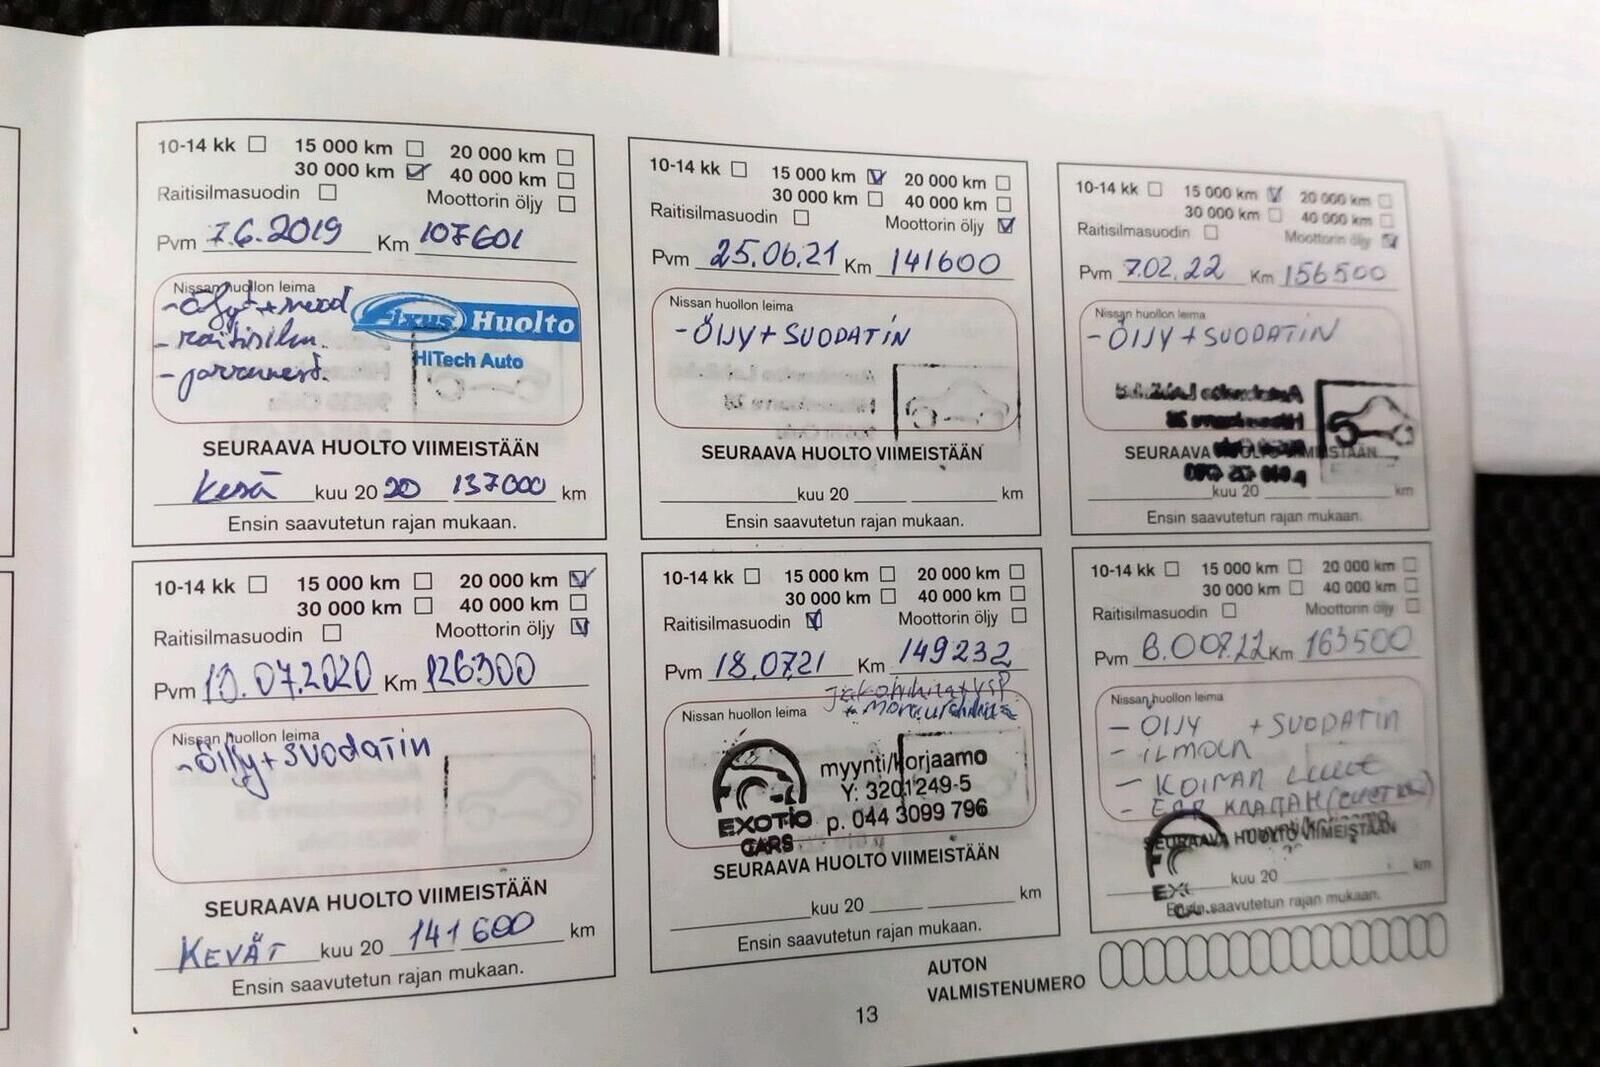 10-14 kk 15 000 km 20 000 km
30 000 km 40 000 km
Raitisilmasuodin Moottorin öljy
Pvm 7.6.2019 Km 107601
Nissan huollon leima
- raitisilm.
Huolto
HiTech Auto
SEURAAVA HUOLTO VIIMEISTÄÄN
Kesä kuu 20 20 137000 km
Ensin saavutetun rajan mukaan.
10-14 kk 15 000 km 20 000 km
30 000 km 40 000 km
Raitisilmasuodin Moottorin öljy
Pvm 25.06.21 Km 141600
Nissan huollon leima
- ÖljY + SUODATiN
SEURAAVA HUOLTO VIIMEISTÄÄN
kuu 20 km
Ensin saavutetun rajan mukaan.
10-14 kk 15 000 km 20 000 km
30 000 km 40 000 km
Raitisilmasuodin Moottorin öljy
Pvm 7.02.22 Km 156500
Nissan huollon leima
- ÖljY + SUODATiN
SEURAAVA HUOLTO VIIMEISTÄÄN
kuu 20 km
Ensin saavutetun rajan mukaan.
10-14 kk 15 000 km 20 000 km
30 000 km 40 000 km
Raitisilmasuodin Moottorin öljy
Pvm 10.07.2020 Km 126300
Nissan huollon leima
- Öljy + suodatin
SEURAAVA HUOLTO VIIMEISTÄÄN
KEVÄT kuu 20 141600 km
Ensin saavutetun rajan mukaan.
10-14 kk 15 000 km 20 000 km
30 000 km 40 000 km
Raitisilmasuodin Moottorin öljy
Pvm 18.07.21 Km 149232
Nissan huollon leima
EXOTIC CARS
myynti/korjaamo
Y: 3201249-5
p. 044 3099 796
SEURAAVA HUOLTO VIIMEISTÄÄN
kuu 20 km
Ensin saavutetun rajan mukaan.
10-14 kk 15 000 km 20 000 km
30 000 km 40 000 km
Raitisilmasuodin Moottorin öljy
Pvm Km 163500
Nissan huollon leima
- ÖljY + SUODATiN
- iLMAN
-
- EGR КЛАПАН
SEURAAVA HUOLTO VIIMEISTÄÄN
kuu 20 km
Ensin saavutetun rajan mukaan.
AUTON
VALMISTENUMERO
13